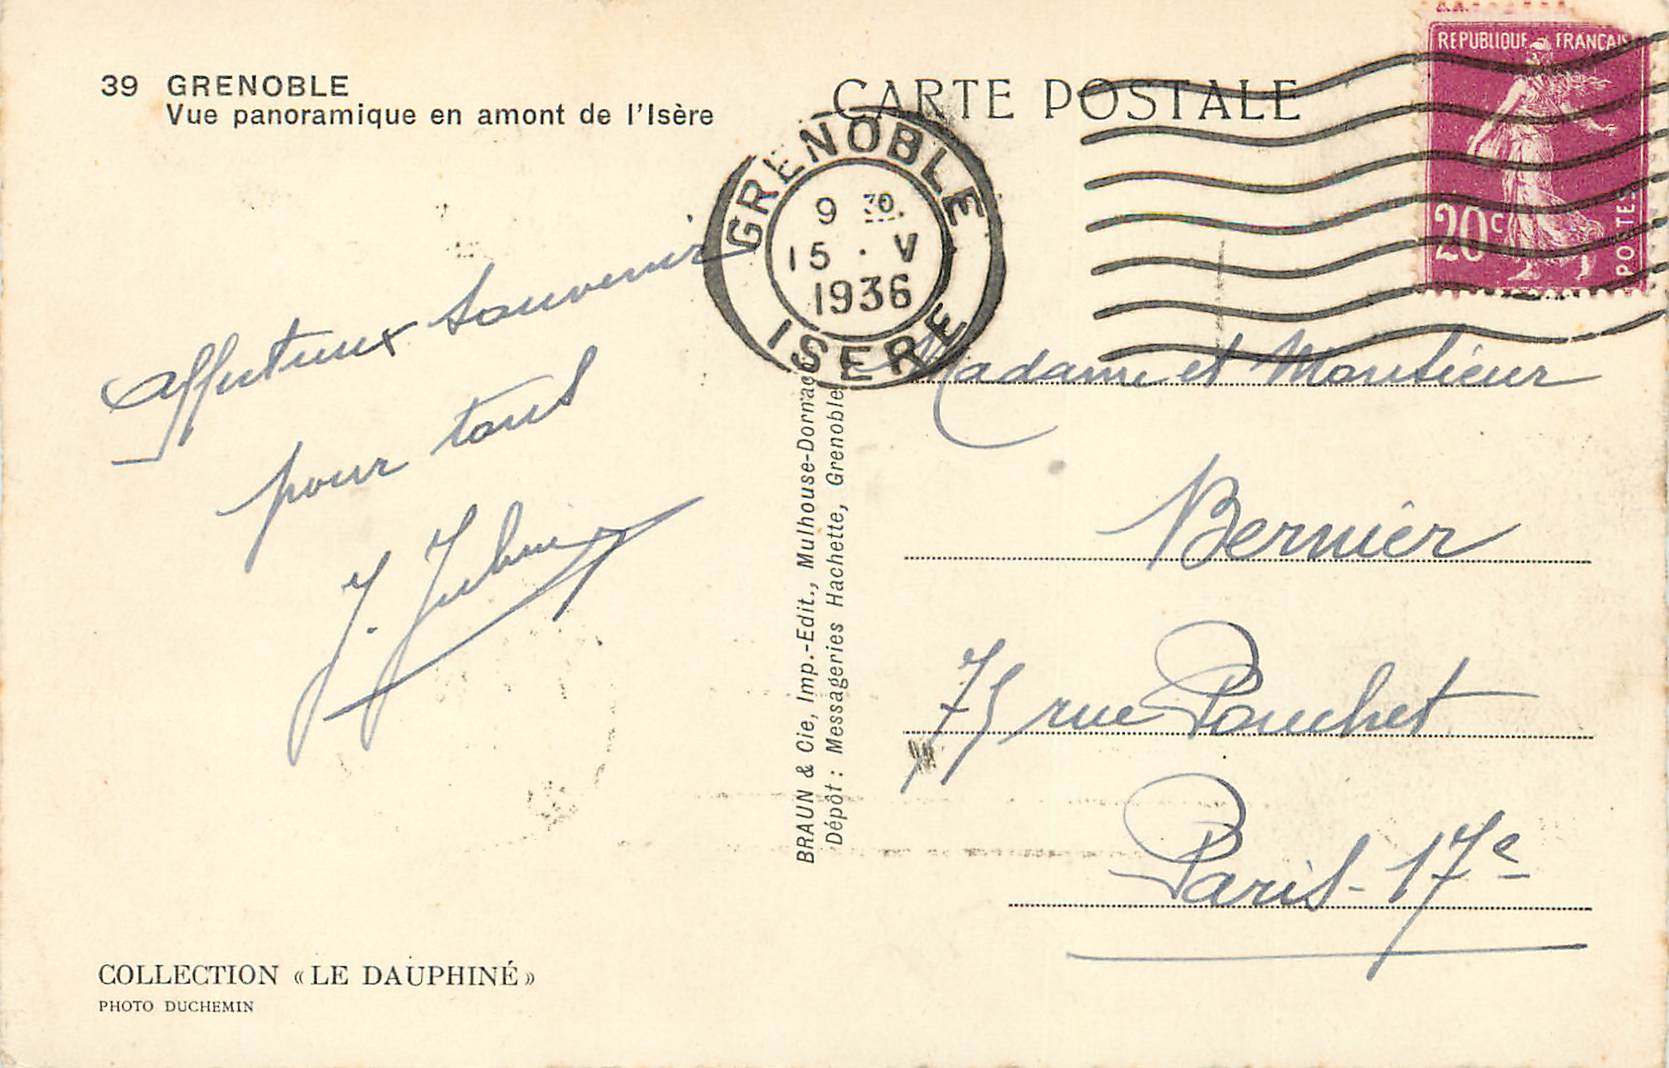 39 GRENOBLE
Vue panoramique en amont de l'Isère
CARTE POSTALE
REPUBLIQUE FRANÇAISE
20c
POSTES
GRENOBLE
9 30
15 · V
1936
ISERE
affectueux souvenir
pour tous
J.
Madame et Monsieur
Bernier
75 rue Pouchet
Paris-17e
BRAUN & Cie, Imp.-Edit., Mulhouse-Dornach
Dépôt : Messageries Hachette, Grenoble
COLLECTION « LE DAUPHINÉ »
PHOTO DUCHEMIN